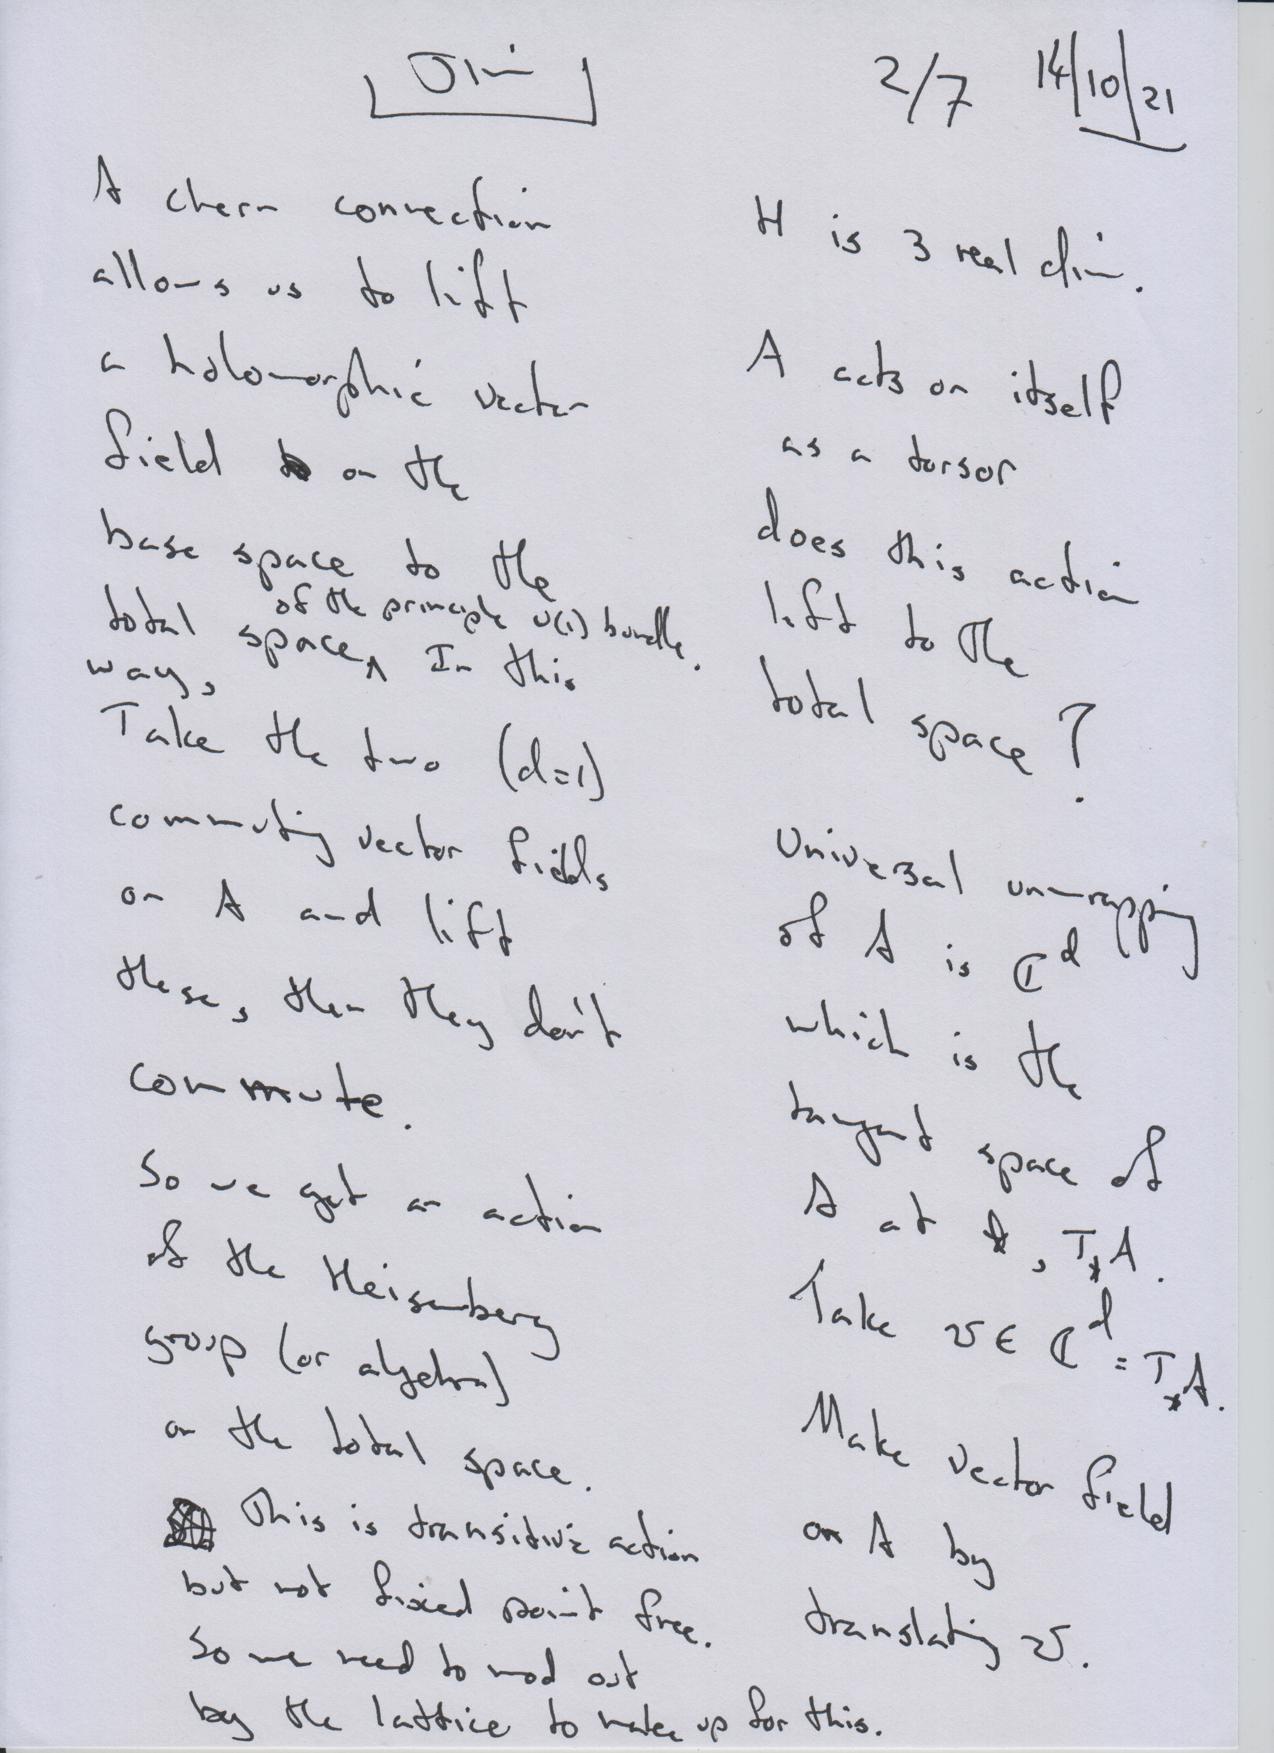 2/7 14/10/21
A chern connection
allows us to lift
a holomorphic vector
field on the
base space to the
total space, In this
of the principle U(1) bundle.
way,
Take the two (d=1)
commuting vector fields
on A and lift
these, then they don't
commute.
So we get an action
of the Heisenberg
group (or algebra)
on the total space.
This is transitive action
but not fixed point free.
So we need to mod out
by the lattice to make up for this.
H is 3 real dim.
A acts on itself
as a torsor
does this action
lift to the
total space?
Universal unwrapping
of A is ℂᵈ
which is the
tangent space of
A at *, T_*A.
Take v ∈ ℂᵈ = T_*A.
Make vector field
on A by
translating v.